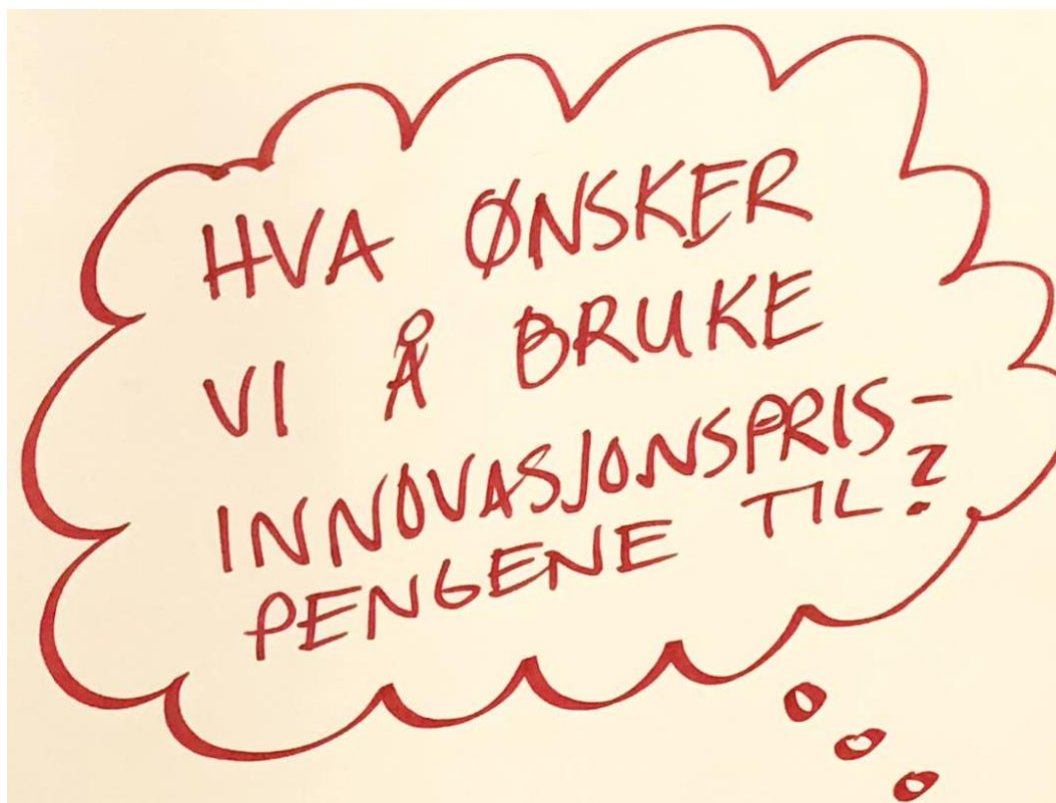 HVA ØNSKER
VI Å BRUKE
INNOVASJONSPRIS-
PENGENE TIL?